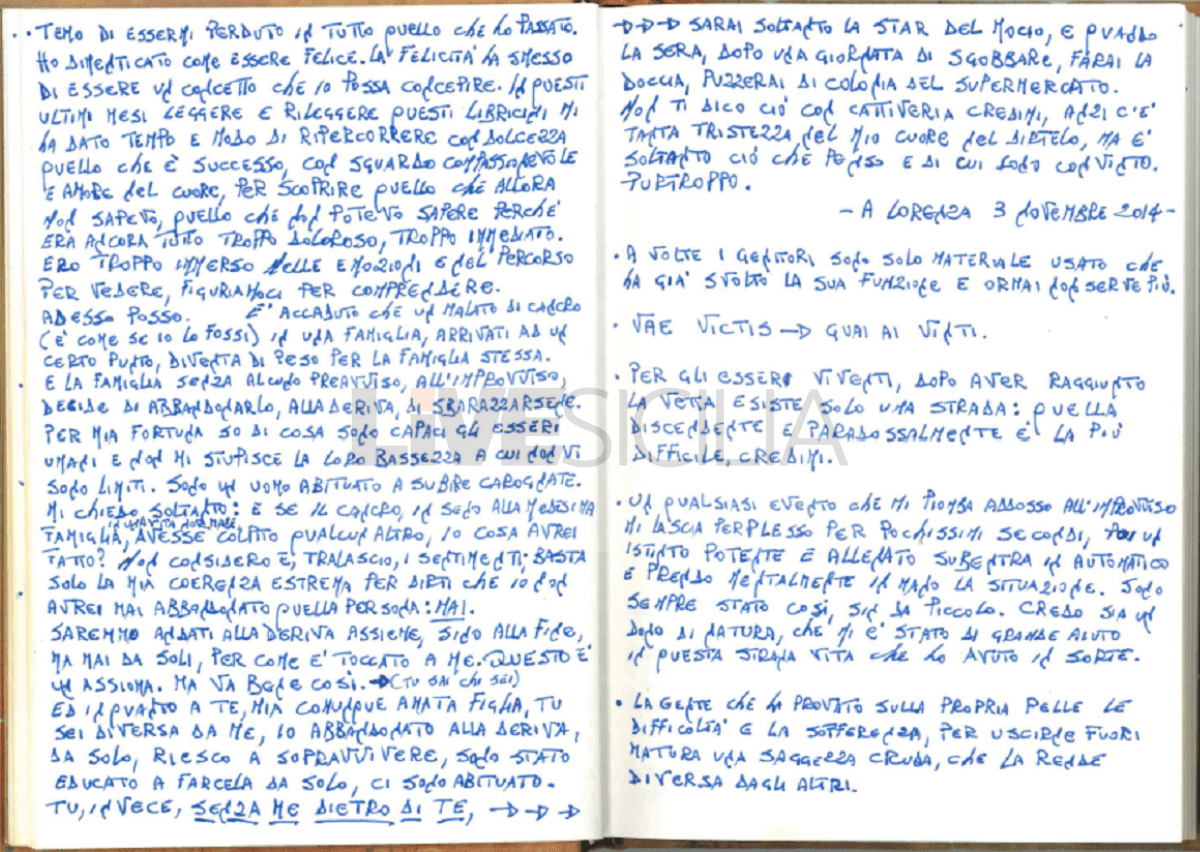 • TEMO DI ESSERMI PERDUTO IN TUTTO QUELLO CHE HO PASSATO.
HO DIMENTICATO COME ESSERE FELICE. LA FELICITÀ HA SMESSO
DI ESSERE UN CONCETTO CHE IO POSSA CONCEPIRE. IN QUESTI
ULTIMI MESI LEGGERE E RILEGGERE QUESTI LIBRICINI MI
HA DATO TEMPO E MODO DI RIPERCORRERE CON DOLCEZZA
QUELLO CHE È SUCCESSO, CON SGUARDO COMPASSIONEVOLE
E AMORE NEL CUORE, PER SCOPRIRE QUELLO CHE ALLORA
NON SAPEVO, QUELLO CHE NON POTEVO SAPERE PERCHE'
ERA ANCORA TUTTO TROPPO DOLOROSO, TROPPO IMMEDIATO.
ERO TROPPO IMMERSO NELLE EMOZIONI E NEL PERCORSO
PER VEDERE, FIGURIAMOCI PER COMPRENDERE.
ADESSO POSSO. E' ACCADUTO CHE UN MALATO DI CANCRO
(E' COME SE IO LO FOSSI) IN UNA FAMIGLIA, ARRIVATI AD UN
CERTO PUNTO, DIVENTA DI PESO PER LA FAMIGLIA STESSA.
E LA FAMIGLIA SENZA ALCUNO PREAVVISO, ALL'IMPROVVISO,
DECIDE DI ABBANDONARLO, ALLA DERIVA, DI SBARAZZARSENE.
PER MIA FORTUNA SO DI COSA SONO CAPACI GLI ESSERI
UMANI E NON MI STUPISCE LA LORO BASSEZZA A CUI NON VI
SONO LIMITI. SONO UN UOMO ABITUATO A SUBIRE CAROGNATE.
MI CHIEDO SOLTANTO: E SE IL CANCRO, IN SENO ALLA MEDESIMA
IN UNA VITA NORMALE,
FAMIGLIA, AVESSE COLPITO QUALCUN ALTRO, IO COSA AVREI
FATTO? NON CONSIDERO E, TRALASCIO, I SENTIMENTI; BASTA
SOLO LA MIA COERENZA ESTREMA PER DIRTI CHE IO NON
AVREI MAI ABBANDONATO QUELLA PERSONA: MAI.
SAREMMO ANDATI ALLA DERIVA ASSIEME, SINO ALLA FINE,
MA MAI DA SOLI, PER COME E' TOCCATO A ME. QUESTO E'
UN ASSIOMA. MA VA BENE COSÌ. → (TU SAI CHI SEI)
ED IN QUANTO A TE, MIA COMUNQUE AMATA FIGLIA, TU
SEI DIVERSA DA ME, IO ABBANDONATO ALLA DERIVA,
DA SOLO, RIESCO A SOPRAVVIVERE, SONO STATO
EDUCATO A FARCELA DA SOLO, CI SONO ABITUATO.
TU, INVECE, SENZA ME DIETRO DI TE, → → →
→ → → SARAI SOLTANTO LA STAR DEL MOCIO, E QUANDO
LA SERA, DOPO UNA GIORNATA DI SGOBBARE, FARAI LA
DOCCIA, PUZZERAI DI COLONIA DEL SUPERMERCATO.
NON TI DICO CIÒ CON CATTIVERIA CREDIMI, ANZI C'E'
TANTA TRISTEZZA NEL MIO CUORE NEL DIRTELO, MA E'
SOLTANTO CIÒ CHE PENSO E DI CUI SONO CONVINTO.
PURTROPPO.
- A LORENZA 3 NOVEMBRE 2014 -
• A VOLTE I GENITORI SONO SOLO MATERIALE USATO CHE
HA GIA' SVOLTO LA SUA FUNZIONE E ORMAI NON SERVE PIÙ.
• VAE VICTIS → GUAI AI VINTI.
• PER GLI ESSERI VIVENTI, DOPO AVER RAGGIUNTO
LA VETTA ESISTE SOLO UNA STRADA: QUELLA
DISCENDENTE E PARADOSSALMENTE E' LA PIÙ
DIFFICILE, CREDIMI.
• UN QUALSIASI EVENTO CHE MI PIOMBA ADDOSSO ALL'IMPROVVISO
MI LASCIA PERPLESSO PER POCHISSIMI SECONDI, POI UN
ISTINTO POTENTE E ALLENATO SUBENTRA IN AUTOMATICO
E PRENDO MENTALMENTE IN MANO LA SITUAZIONE. SONO
SEMPRE STATO COSÌ, SIN DA PICCOLO. CREDO SIA UN
DONO DI NATURA, CHE MI E' STATO DI GRANDE AIUTO
IN QUESTA STRANA VITA CHE HO AVUTO IN SORTE.
• LA GENTE CHE HA PROVATO SULLA PROPRIA PELLE LE
DIFFICOLTA' E LA SOFFERENZA, PER USCIRNE FUORI
MATURA UNA SAGGEZZA CRUDA, CHE LA RENDE
DIVERSA DAGLI ALTRI.
LIVESICILIA